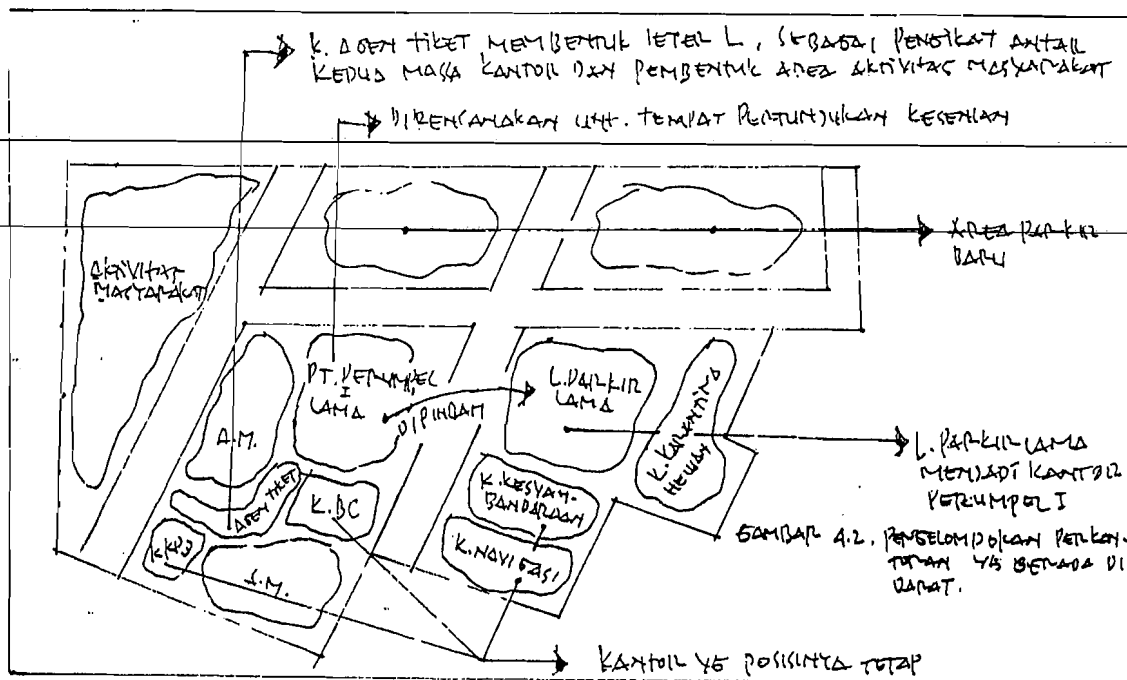 K. AGEN TIKET MEMBENTUK LETER L, SEBAGAI PENGIKAT ANTAR
KEDUA MASSA KANTOR DAN PEMBENTUK AREA AKTIVITAS MASYARAKAT
DIRENCANAKAN UNT. TEMPAT PERTUNJUKAN KESENIAN
AREA PARKIR
BARU
AKTIVITAS
MASYARAKAT
PT. PERUMPEL
I
LAMA
DIPINDAH
L. PARKIR
LAMA
K. KARANTINA
HEWAN
A.M.
AGEN TIKET
K. BC
K. KESYAH-
BANDARAAN
K. NAVIGASI
L. PARKIR LAMA
MENJADI KANTOR
PERUMPEL I
GAMBAR 4.2. PENGELOMPOKAN PERKAN-
TORAN YG BERADA DI
DARAT.
KANTOR YG POSISINYA TETAP